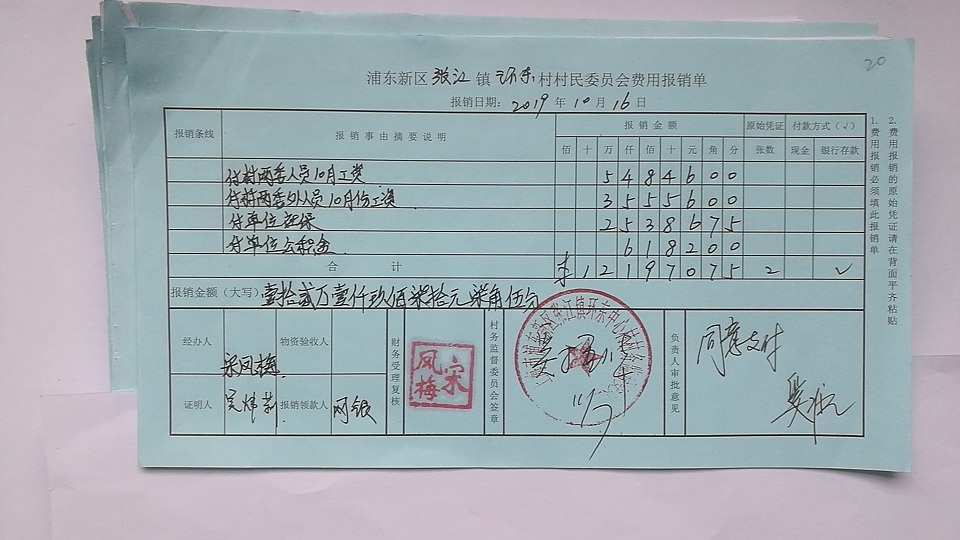 20
浦东新区张江镇环东村村民委员会费用报销单
报销日期：2019年10月16日
报销条线 报销事由摘要说明 报销金额 原始凭证 付款方式（√）
佰 十 万 仟 佰 十 元 角 分 张数 现金 银行存款
付村两委人员10月工资 5 4 8 4 6 0 0
付村两委外人员10月份工资 3 5 5 5 6 0 0
付单位社保 2 5 3 8 6 7 5
付单位公积金 6 1 8 2 0 0
合计 ¥ 1 2 1 9 7 0 7 5 2 √
报销金额（大写）壹拾贰万壹仟玖佰柒拾元柒角伍分
经办人 宋凤梅 物资验收人
证明人 报销领款人 网银
财务受理复核
宋凤梅
村务监督委员会签章
11/7
负责人审批意见
同意支付
1.费用报销必须填此报销单
2.费用报销的原始凭证请在背面平齐粘贴